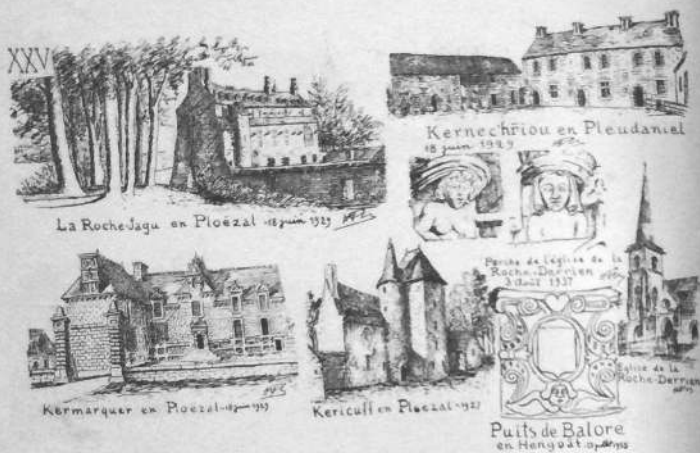 XXV
La Roche-Jagu en Ploëzal - 18 juin 1929
Kernec'hriou en Pleudaniel
18 juin 1929
Porche de l'église de la
Roche-Derrien
3 Août 1937
Kermarquer en Ploezal - 18 juin 1929
Kericuff en Ploezal - 1927
Eglise de la
Roche-Derrien
Puits de Balore
en Hengoat